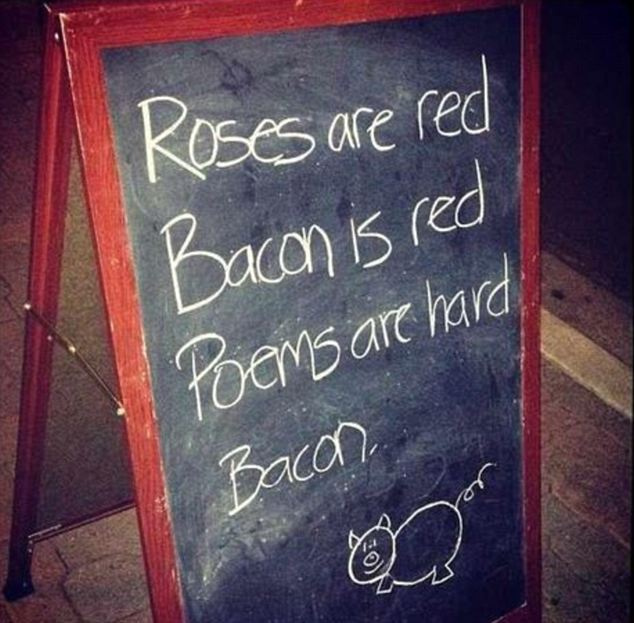 Roses are red
Bacon is red
Poems are hard
Bacon.